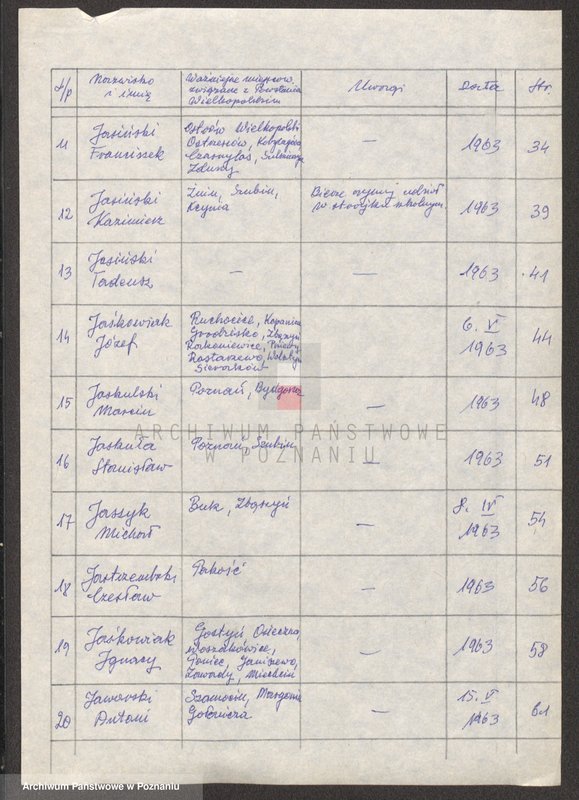 L/p Nazwisko i imię Ważniejsze miejscow. związane z Powstaniem Wielkopolskim Uwagi Data Str.
11 Jasiński Franciszek Ostrów Wielkopolski Ostrzeszów, Kobylagóra Czarnylas, Zduny — 1963 34
12 Jasiński Kazimierz Żnin, Szubin, Kcynia Bierze czynny udział w strajku szkolnym 1963 39
13 Jasiński Tadeusz — — 1963 41
14 Jaśkowiak Józef Ruchocice, Kopanica Grodzisko, Zbąszyń Rakoniewice, Rostarzewo, Wolsztyn 6. V 1963 44
15 Jaskulski Marcin Poznań, Bydgoszcz — 1963 48
ARCHIWUM PAŃSTWOWE
W POZNANIU
16 Jaskuła Stanisław Poznań, Szubin — 1963 51
17 Jaszyk Michał Buk, Zbąszyń — 8. IV 1963 54
18 Jastrzembski Czesław Pakość — 1963 56
19 Jaśkowiak Ignacy Gostyń Osieczna, Poniec, Janiszewo, Zawady, — 1963 58
20 Jaworski Antoni Szamocin, Margonin Gołańcza — 15. V 1963 61
Archiwum Państwowe w Poznaniu